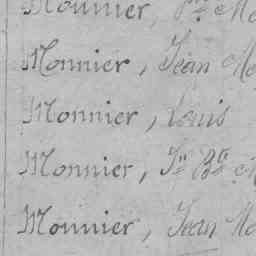 Monnier,
Monnier, Jean
Monnier, Louis
Monnier, Jn Bte
Monnier, Jean